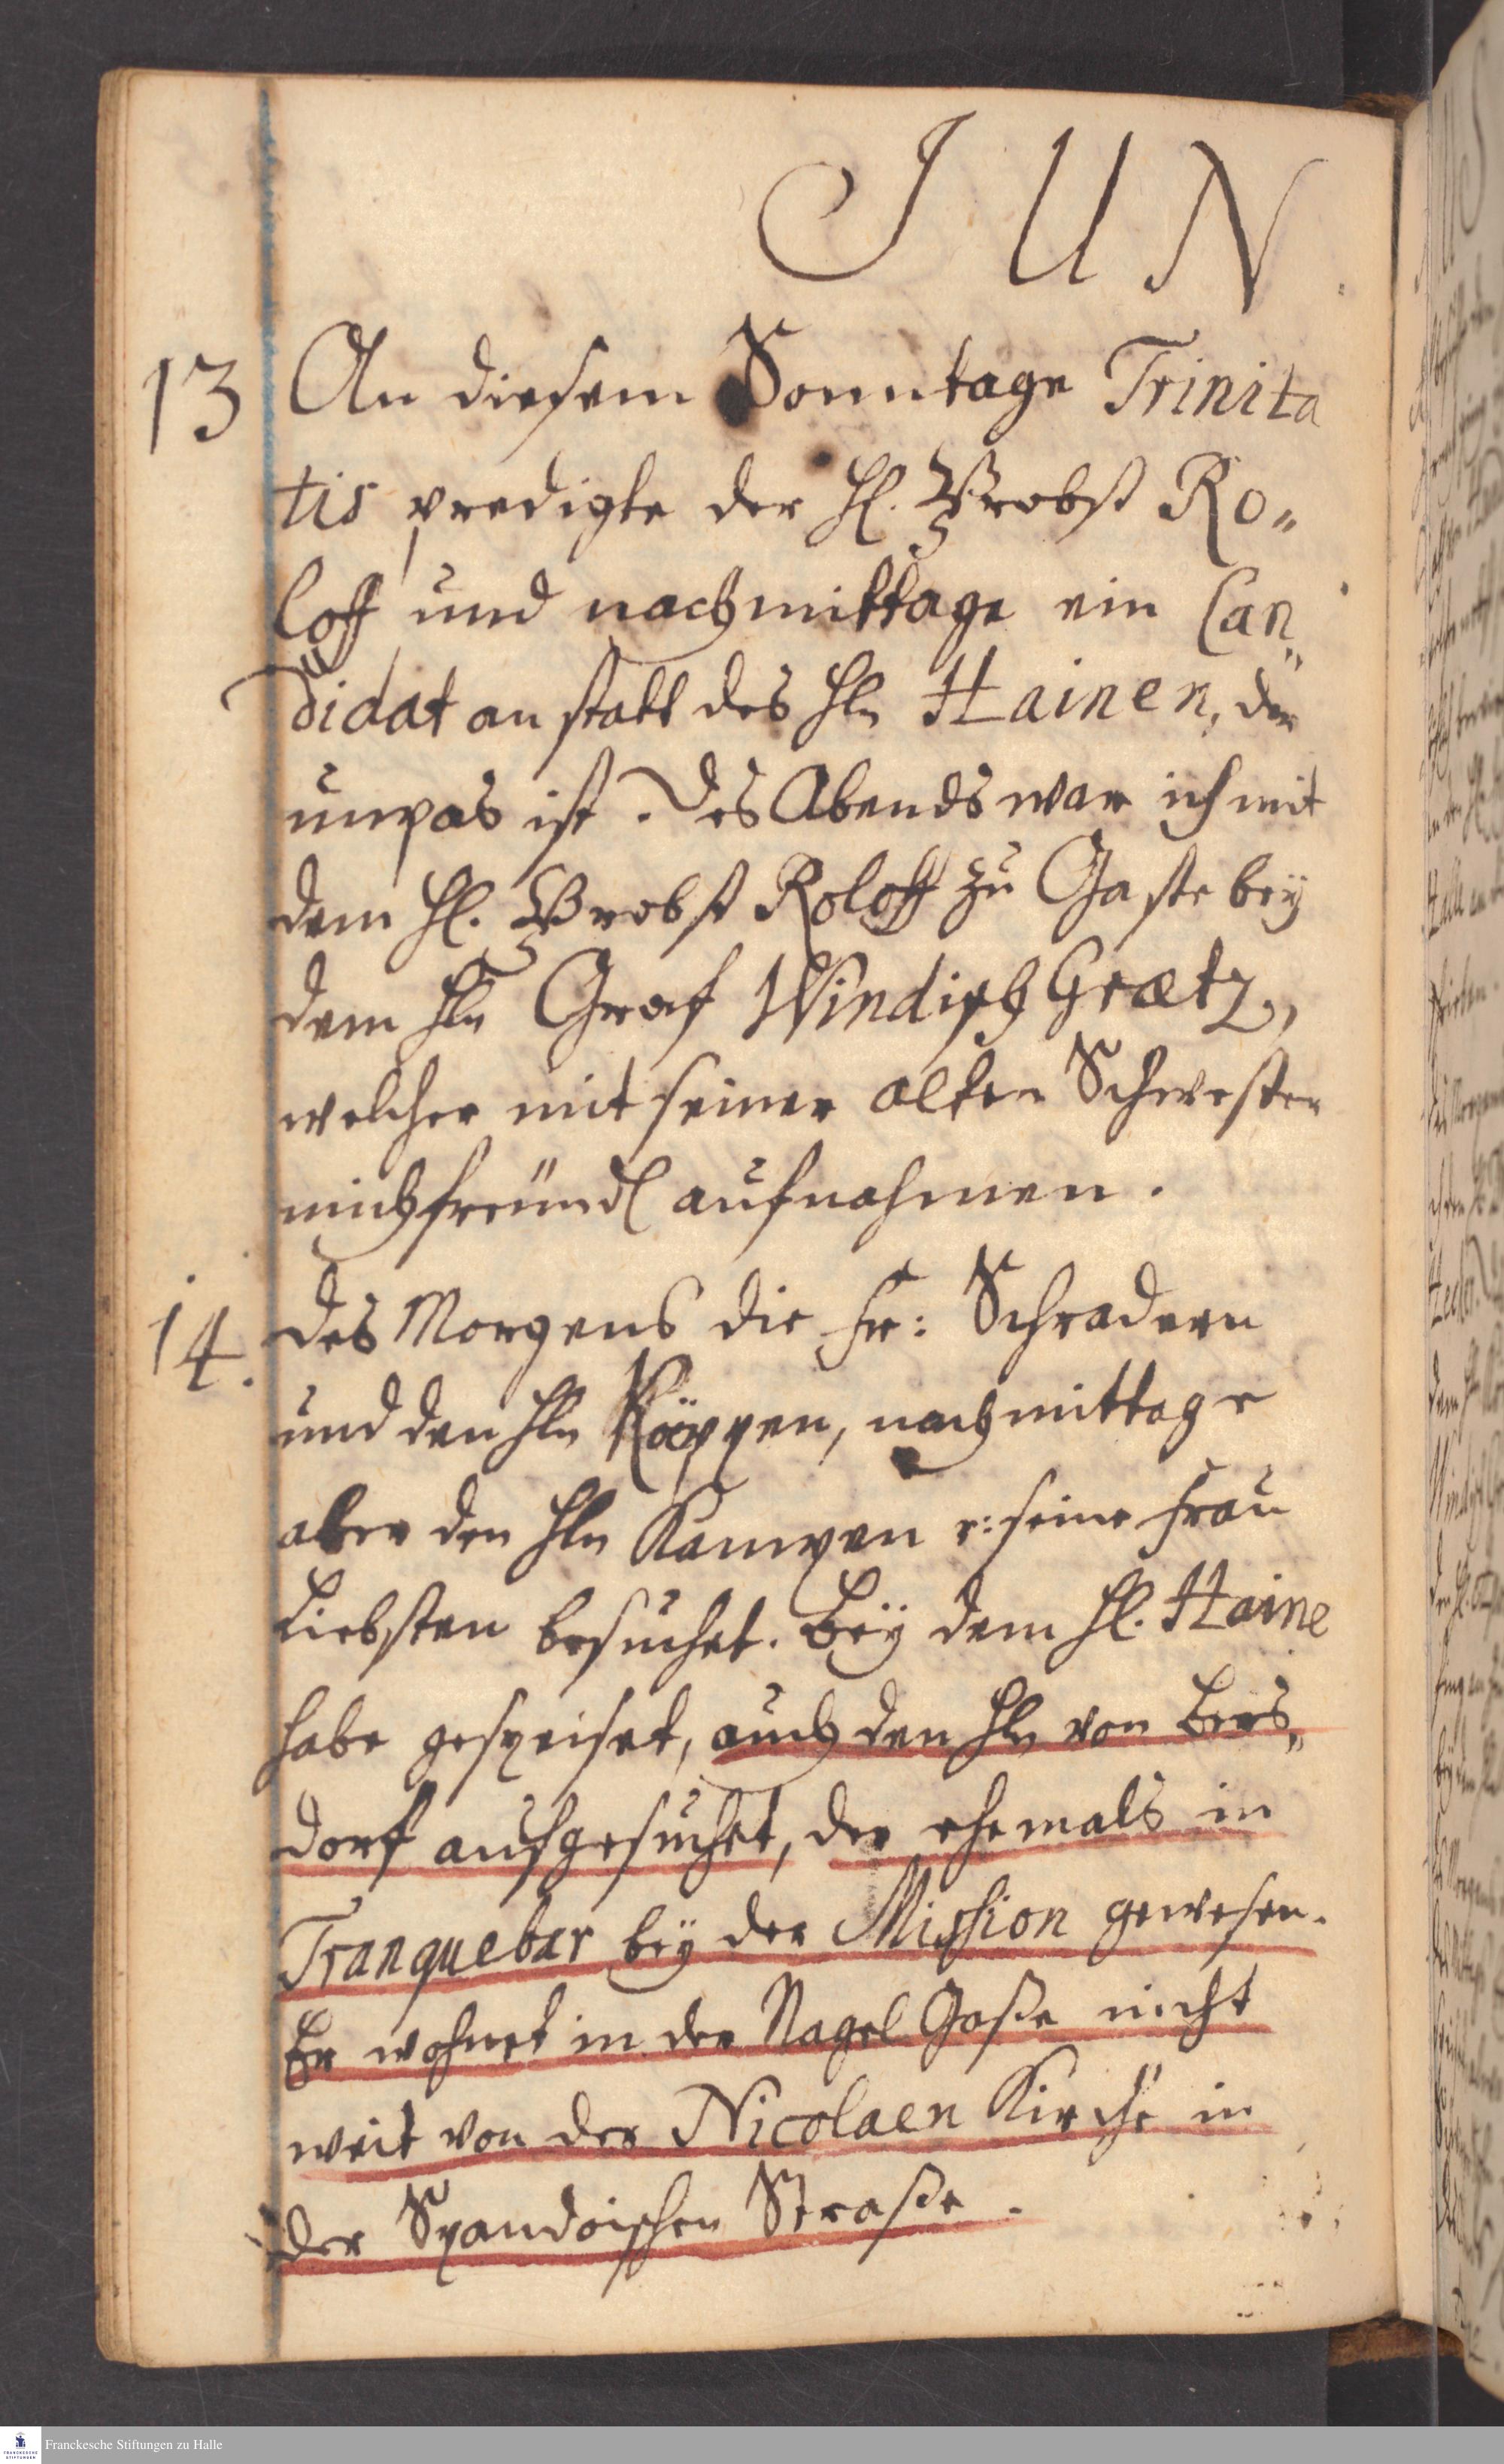 JUN.
13 An diesem Sonntage Trinita
tis predigte der H. Probst Ro„
loff und nachmittage ein Can„
didat an statt des Hln Hainen, der
unpas ist. Des Abends war ich mit
dem H. Probst Roloff zu Gaste bey
dem Hln Graf Windisch Grætz,
welcher mit seiner alten Schwester
mich freundl aufnahmen.
14. Des Morgens die Fr: Schradern
und den Hln Köppen, nachmittage
aber den Hln Kampen u: seine Frau
Liebsten besuchet. Bey dem H. Haine
habe gespeiset, auch den Hln von Bers„
dorf aufgesuchet, der ehemals in
Tranquebar bey der Mission gewesen.
Er wohnet in der Nagel Gaße nicht
weit von der Nicolaen Kirche in
der Spandoischen Straße.
Franckesche Stiftungen zu Halle